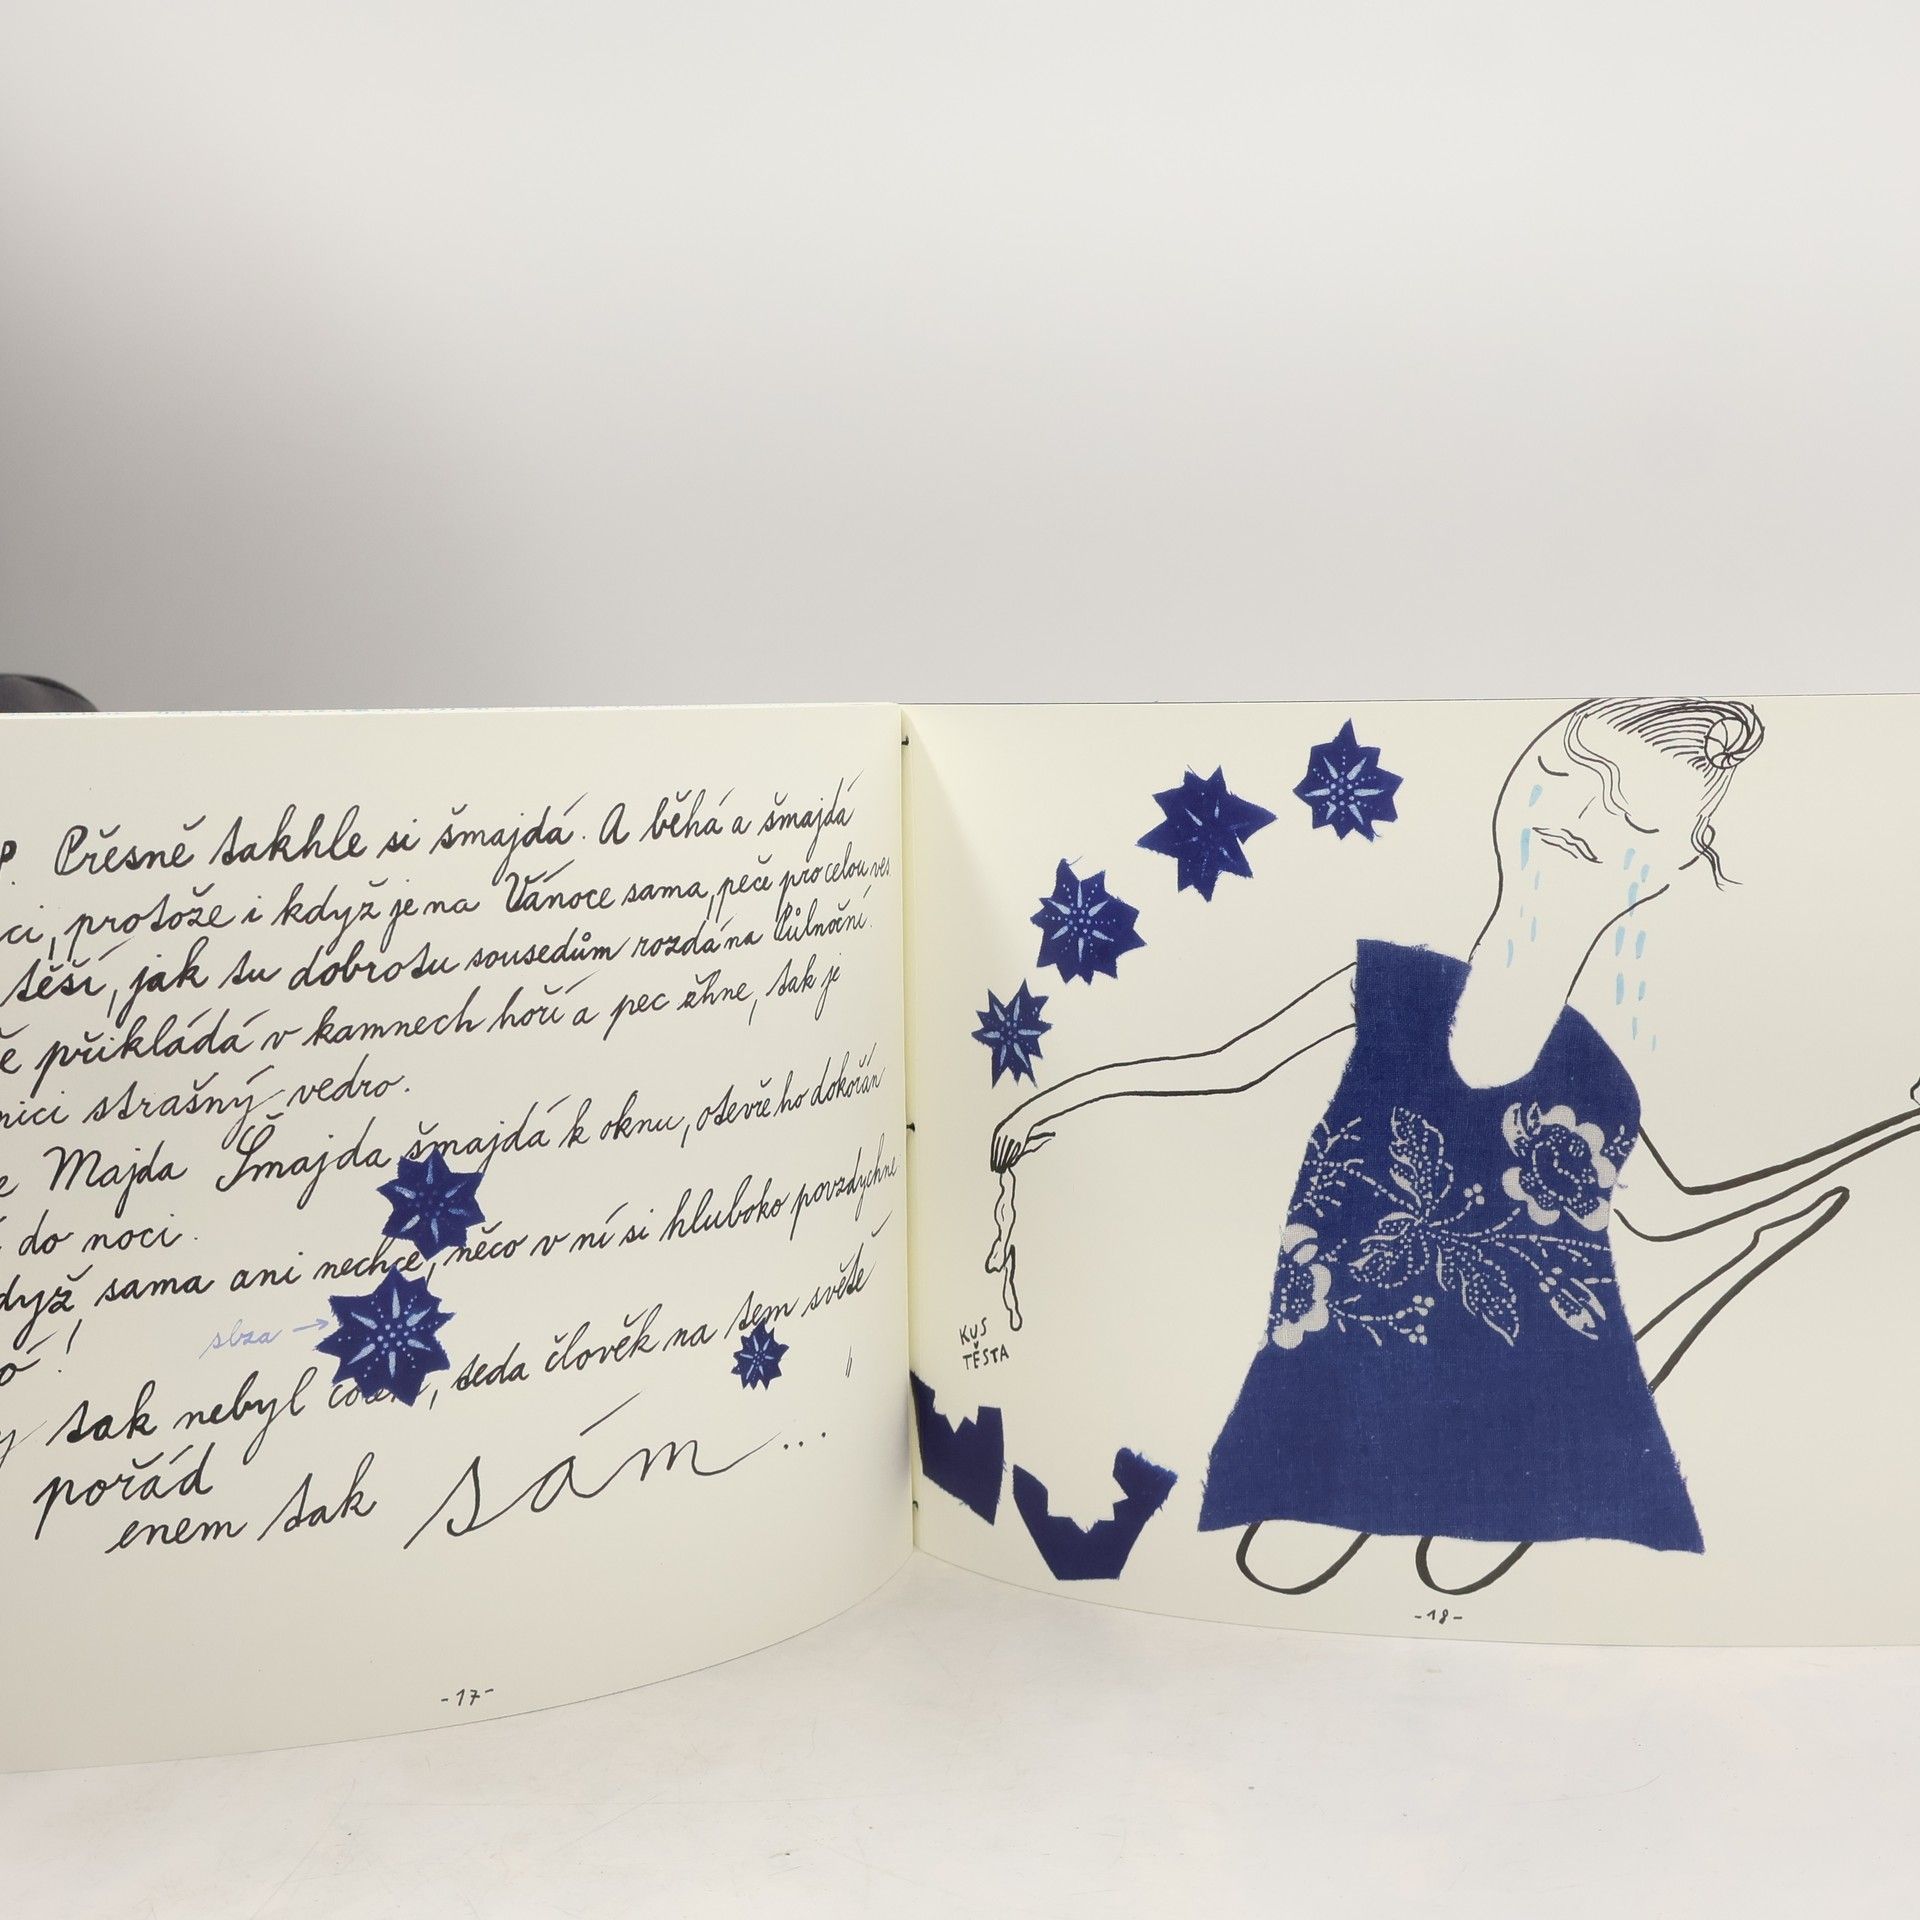 Přesně takhle si šmajdá. A běhá a šmajdá
ci, protože i když je na Vánoce sama, peče pro celou ves
těší, jak tu dobrotu sousedům rozdá na Půlnoční.
přikládá v kamnech hoří a pec žhne, tak je
nici strašný vedro.
Majda Šmajda šmajdá k oknu, otevře ho dokořán
do noci.
dyž sama ani nechce, něco v ní si hluboko povzdychne
slza →
tak nebyl, teda člověk na tem světě
pořád
enem tak sám...
-17-
KUS
TĚSTA
-18-